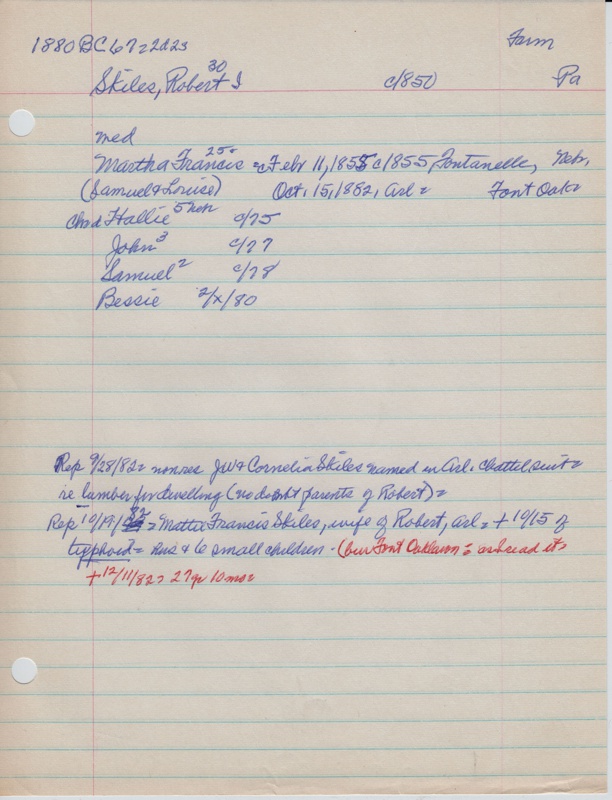 1880 BC 67=22a23 Farm
Skiles, Robert I 30 c/850 Pa
med
Martha Francis 25= =Febr 11, 1855 c1855 Fontanelle, Nebr,
(Samuel & Louise) Oct. 15, 1882, Arl= Font Oak=
chd Hallie 5 Neb c/75
John 3 c/77
Samuel 2 c/78
Bessie 2/x/80
Rep 9/28/82= nonres JW & Cornelia Skiles named in Arl. chattel suit=
re lumber for dwelling (no doubt parents of Robert)=
Rep 10/19/82= Mattie Francis Skiles, wife of Robert, Arl= + 10/15 of
typhoid= Hus & 6 small children - (bur Font Oaklawn = as head it=
+ 12/11/82= 27yr 10mo=